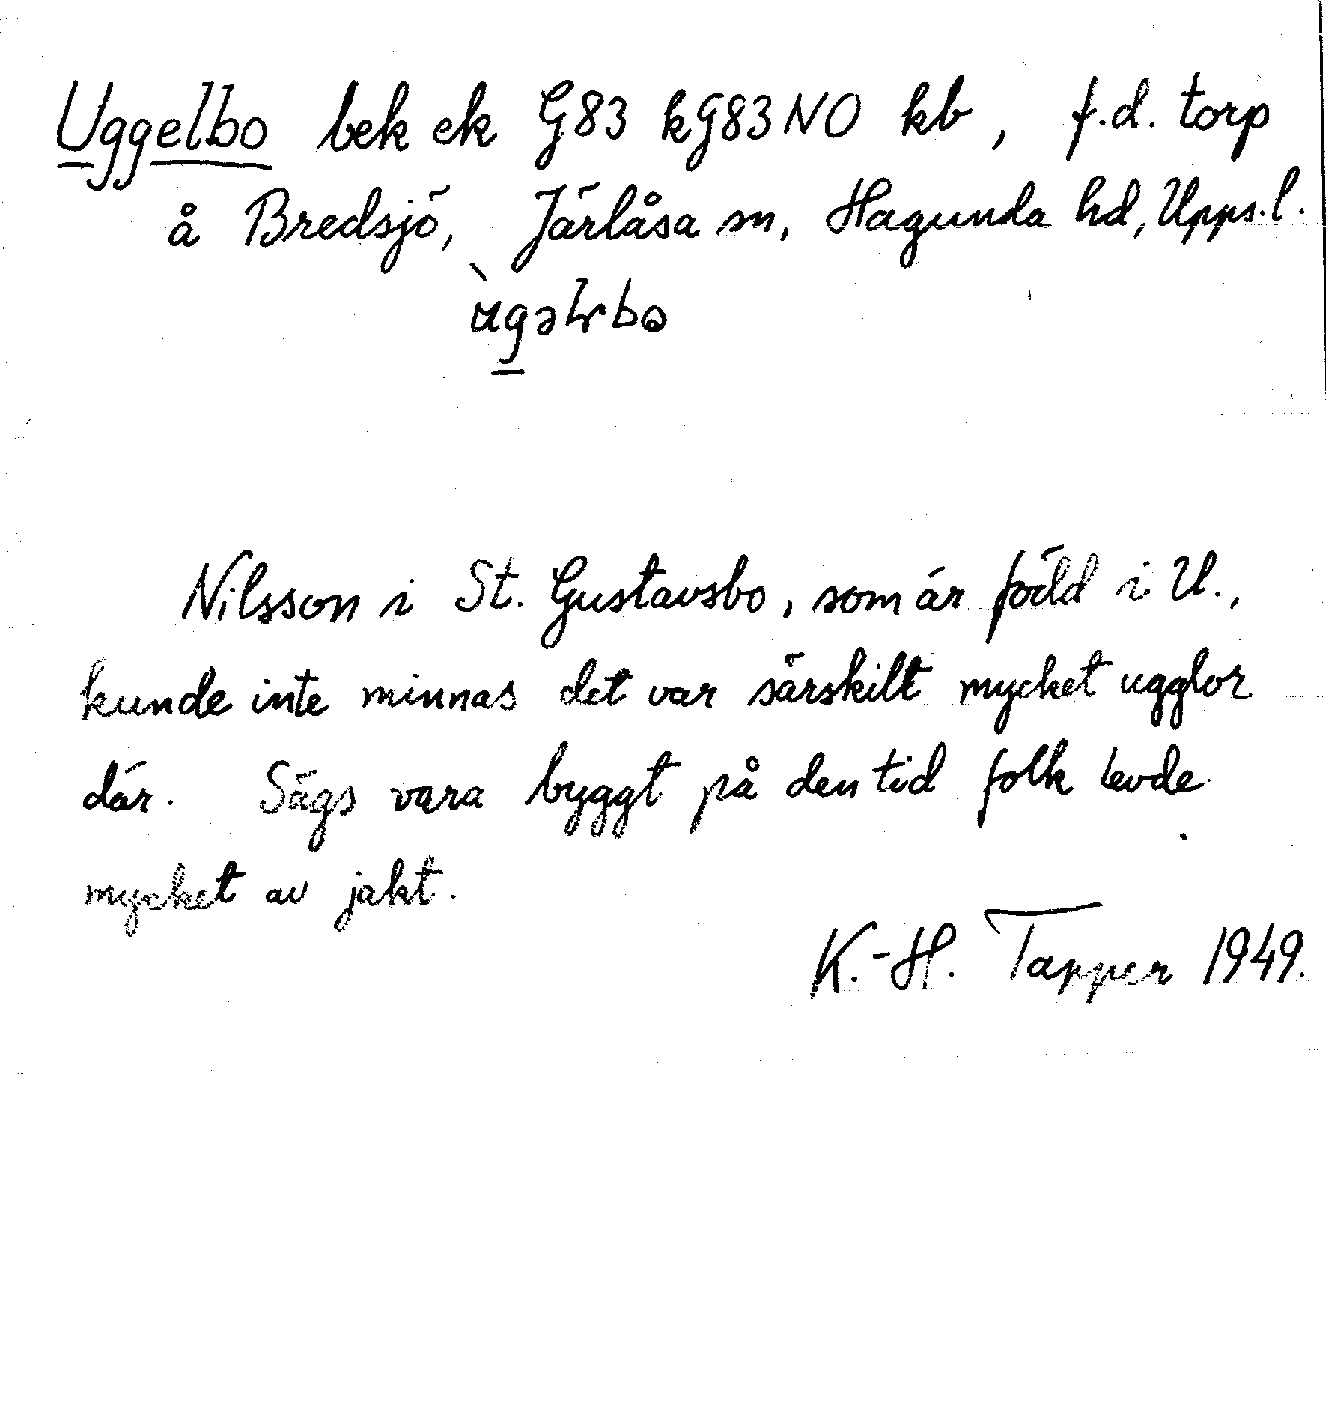 Uggelbo bek ek G83 kG83NO kb, f.d. torp
å Bredsjö, Järlåsa sn, Hagunda hd, Upps.l.
Nilsson i St. Gustavsbo, som är född i U.,
kunde inte minnas det var särskilt mycket ugglor
där. Sägs vara byggt på den tid folk levde
mycket av jakt.
K.-H. Tapper 1949.